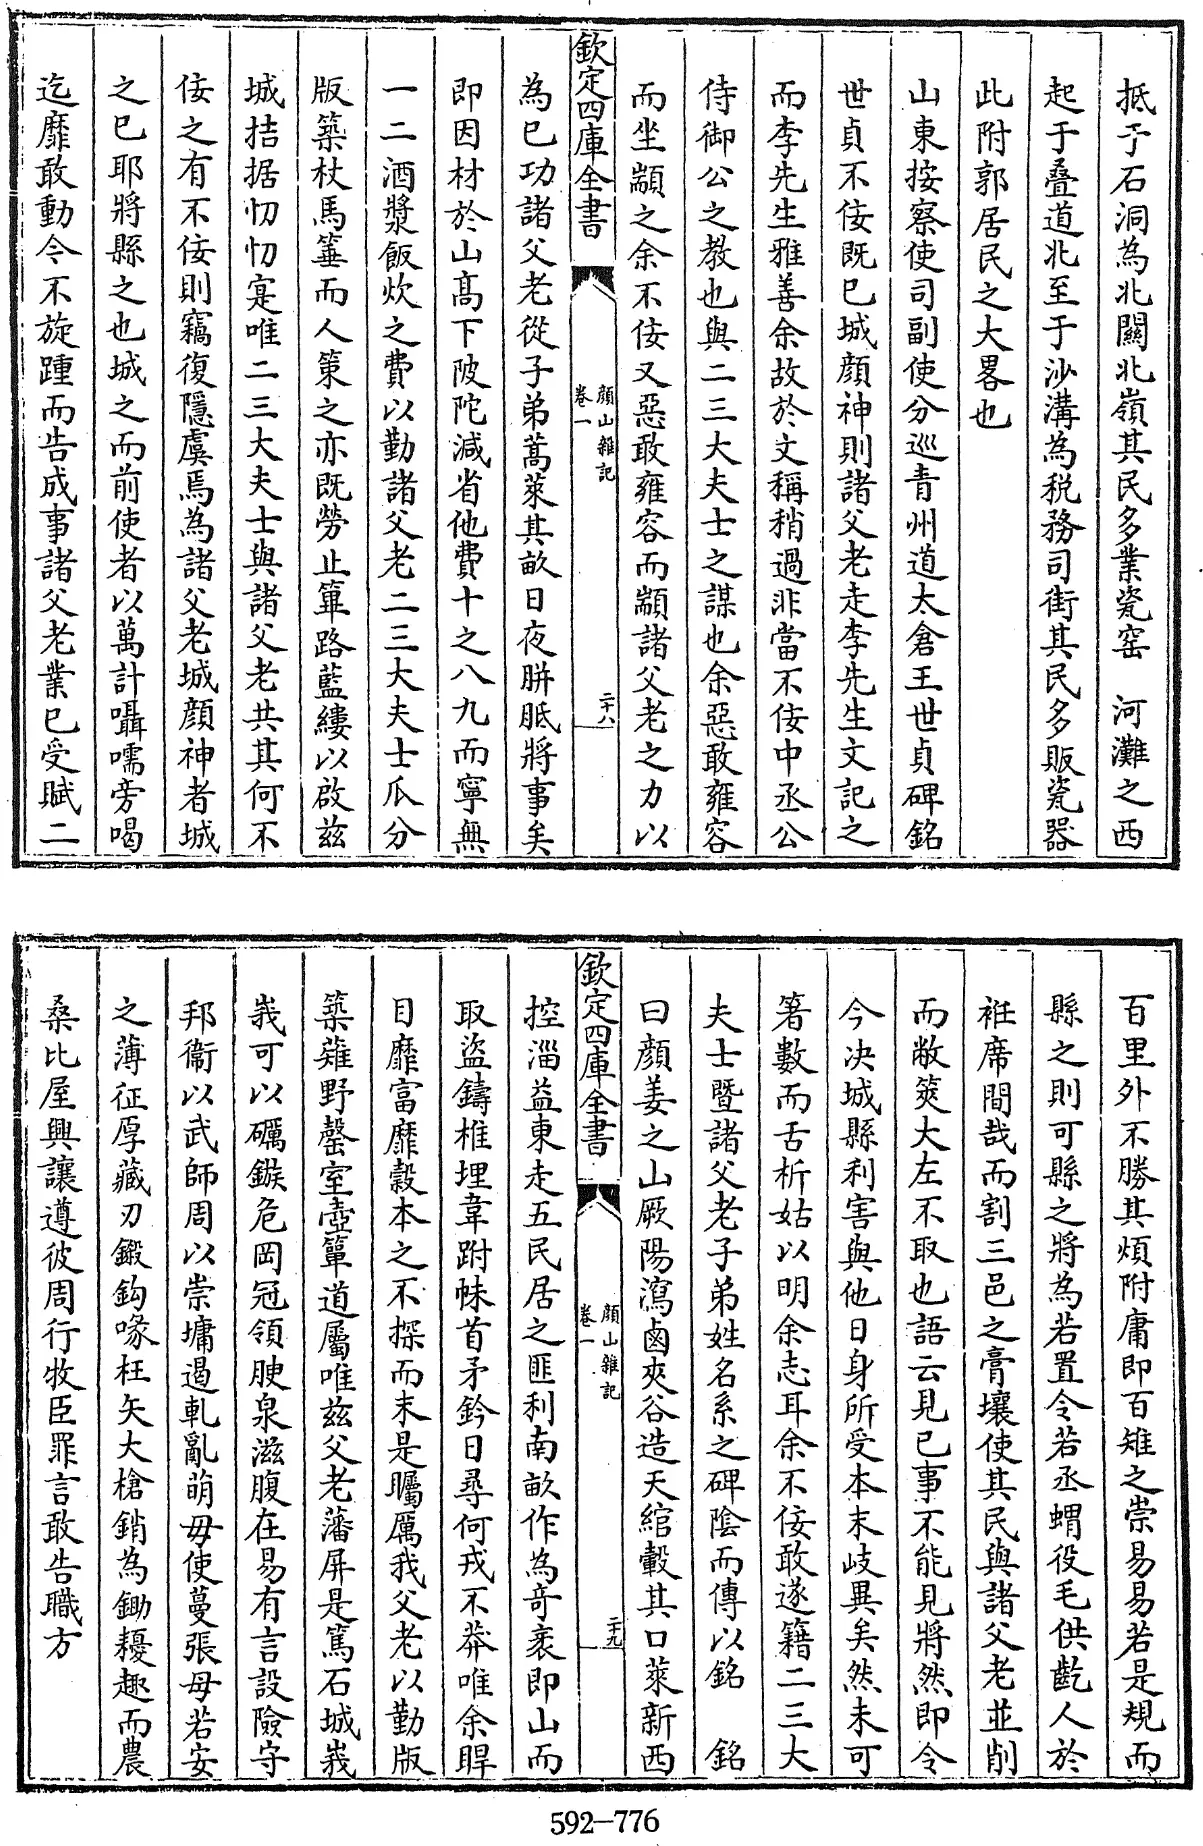 抵于石洞為北關北嶺其民多業瓷窑　河灘之西
起于叠道北至于沙溝為税務司街其民多販瓷器
此附郭居民之大畧也
山東按察使司副使分巡青州道太倉王世貞碑銘
世貞不佞既已城顔神則諸父老走李先生文記之
而李先生雅善余故於文稱稍過非當不佞中丞公
侍御公之教也與二三大夫士之謀也余惡敢雍容
而坐顓之余不佞又惡敢雍容而顓諸父老之力以
欽定四庫全書
顔山雜記
卷一
二十八
為已功諸父老從子弟蒿萊其畝日夜胼胝將事矣
即因材於山高下陂陀減省他費十之八九而寧無
一二酒漿飯炊之費以勤諸父老二三大夫士瓜分
版築杖馬箠而人策之亦既勞止篳路藍縷以啟兹
城拮据忉忉寔唯二三大夫士與諸父老共其何不
佞之有不佞則竊復隱虞焉為諸父老城顔神者城
之已耶將縣之也城之而前使者以萬計囁嚅旁喝
迄靡敢動今不旋踵而告成事諸父老業已受賦二
百里外不勝其煩附庸即百雉之崇易易若是規而
縣之則可縣之將為若置令若丞蝟役毛供齕人於
袵席間哉而割三邑之膏壤使其民與諸父老並削
而敝筴大左不取也語云見已事不能見將然即令
今决城縣利害與他日身所受本末歧異矣然未可
箸數而舌析姑以明余志耳余不佞敢遂籍二三大
夫士暨諸父老子弟姓名系之碑陰而傳以銘　銘
曰顔姜之山厥陽瀉鹵夾谷造天綰轂其口萊新西
欽定四庫全書
顔山雜記
卷一
二十九
控淄益東走五民居之匪利南畝作為奇衺即山而
取盜鑄椎埋韋跗帓首矛鈐日尋何戎不莽唯余睅
目靡富靡穀本之不探而末是矚厲我父老以勤版
築薙野罄室壺簞道屬唯兹父老藩屏是篤石城峩
峩可以礪鏃危岡冠領腴泉滋腹在易有言設險守
邦衞以武師周以崇墉遏軋亂萌毋使蔓張毋若安
之薄征厚藏刃鍛鈎喙枉矢大槍銷為鋤耰趣而農
桑比屋興讓遵彼周行牧臣罪言敢告職方
592-776